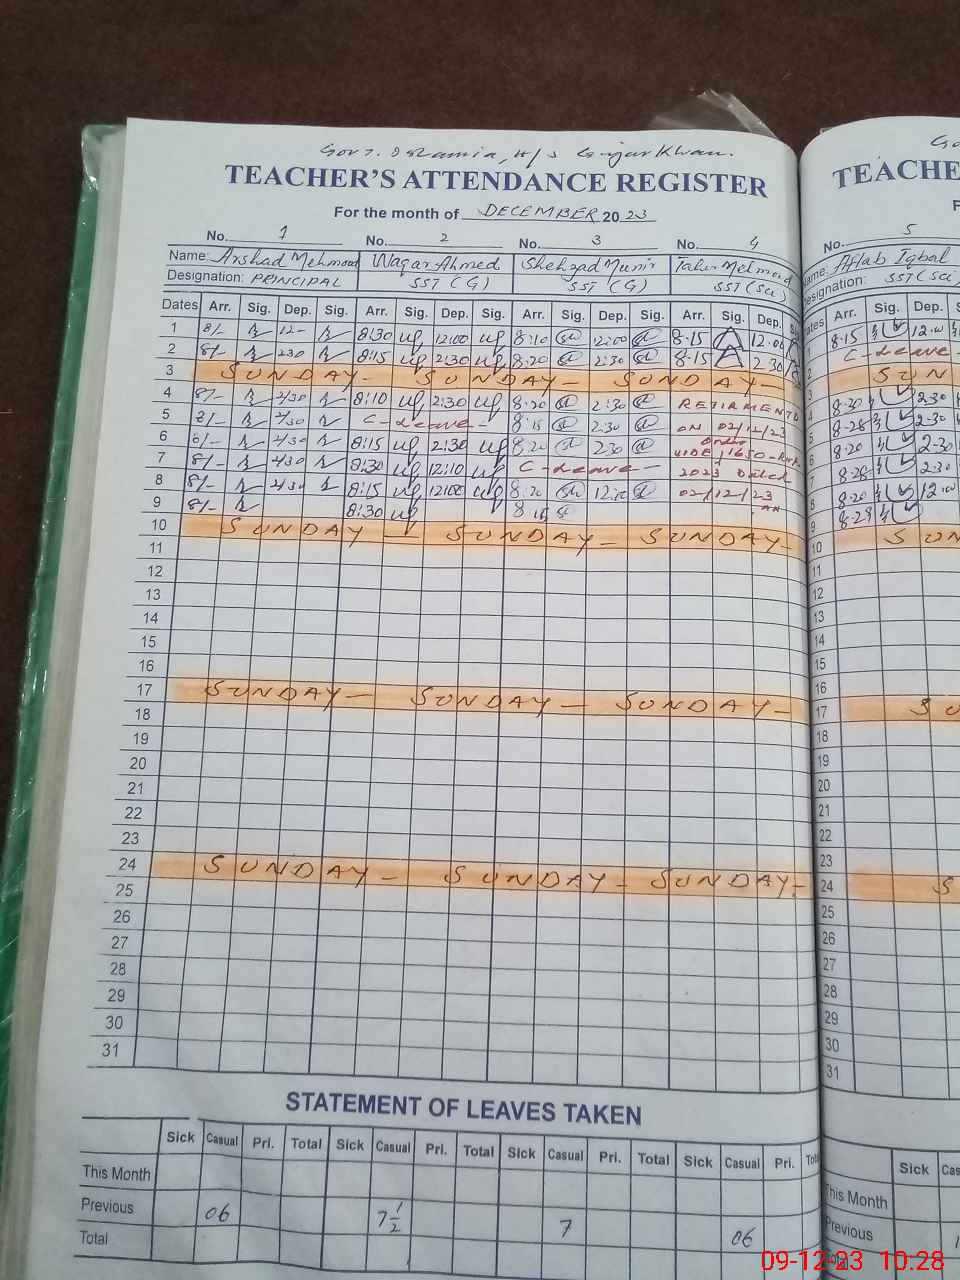 Govt. Islamia, H/S Gujar Khan.
TEACHER'S ATTENDANCE REGISTER
For the month of DECEMBER 2023
No. 1 No. 2 No. 3 No. 4
Name: Arshad Mehmood Waqar Ahmed Shehzad Munir Tahir Mehmood
Designation: PRINCIPAL SST (G) SST (G) SST (Sci)
Dates Arr. Sig. Dep. Sig. Arr. Sig. Dep. Sig. Arr. Sig. Dep. Sig. Arr. Sig. Dep.
1 8/- 12- 8:30 12:00 8:10 12:00 8:15 12:00
2 8/- 230 8:15 2:30 8:20 2:30 8:15 2:30
3 SUNDAY- SUNDAY- SUNDAY-
4 8/- 2/30 8:10 2:30 8:20 2:30 RETIRMENT
5 8/- 2/30 C-Leave- 8:15 2:30 ON 02/12/23
6 8/- 2/30 8:15 2:30 8:20 230 Order
7 8/- 2/30 8:30 12:10 C-Leave- 2023 Dated
8 8/- 2/30 8:15 12:00 8:20 12:10 02/12/23
9 8/- 8:30 8:15
10 SUNDAY - SUNDAY- SUNDAY-
11
12
13
14
15
16
17 SUNDAY- SUNDAY- SUNDAY-
18
19
20
21
22
23
24 SUNDAY- SUNDAY- SUNDAY-
25
26
27
28
29
30
31
STATEMENT OF LEAVES TAKEN
Sick Casual Pri. Total Sick Casual Pri. Total Sick Casual Pri. Total Sick Casual Pri.
This Month
Previous 06 7 1/2 7 06
Total
TEACHE
No. 5
Name: Aftab Iqbal
Designation: SST (Sci)
Arr. Sig. Dep.
8:15 12:00
C-Leave-
SUN
8:20 2:30
8-28 2:30
8:20 2:30
8:28 2:30
8:20 12:00
8:29
10 SUN
11
12
13
14
15
16
17 SU
18
19
20
21
22
23
24 S
25
26
27
28
29
30
31
Sick
This Month
Previous
Total
09-12-23 10.28